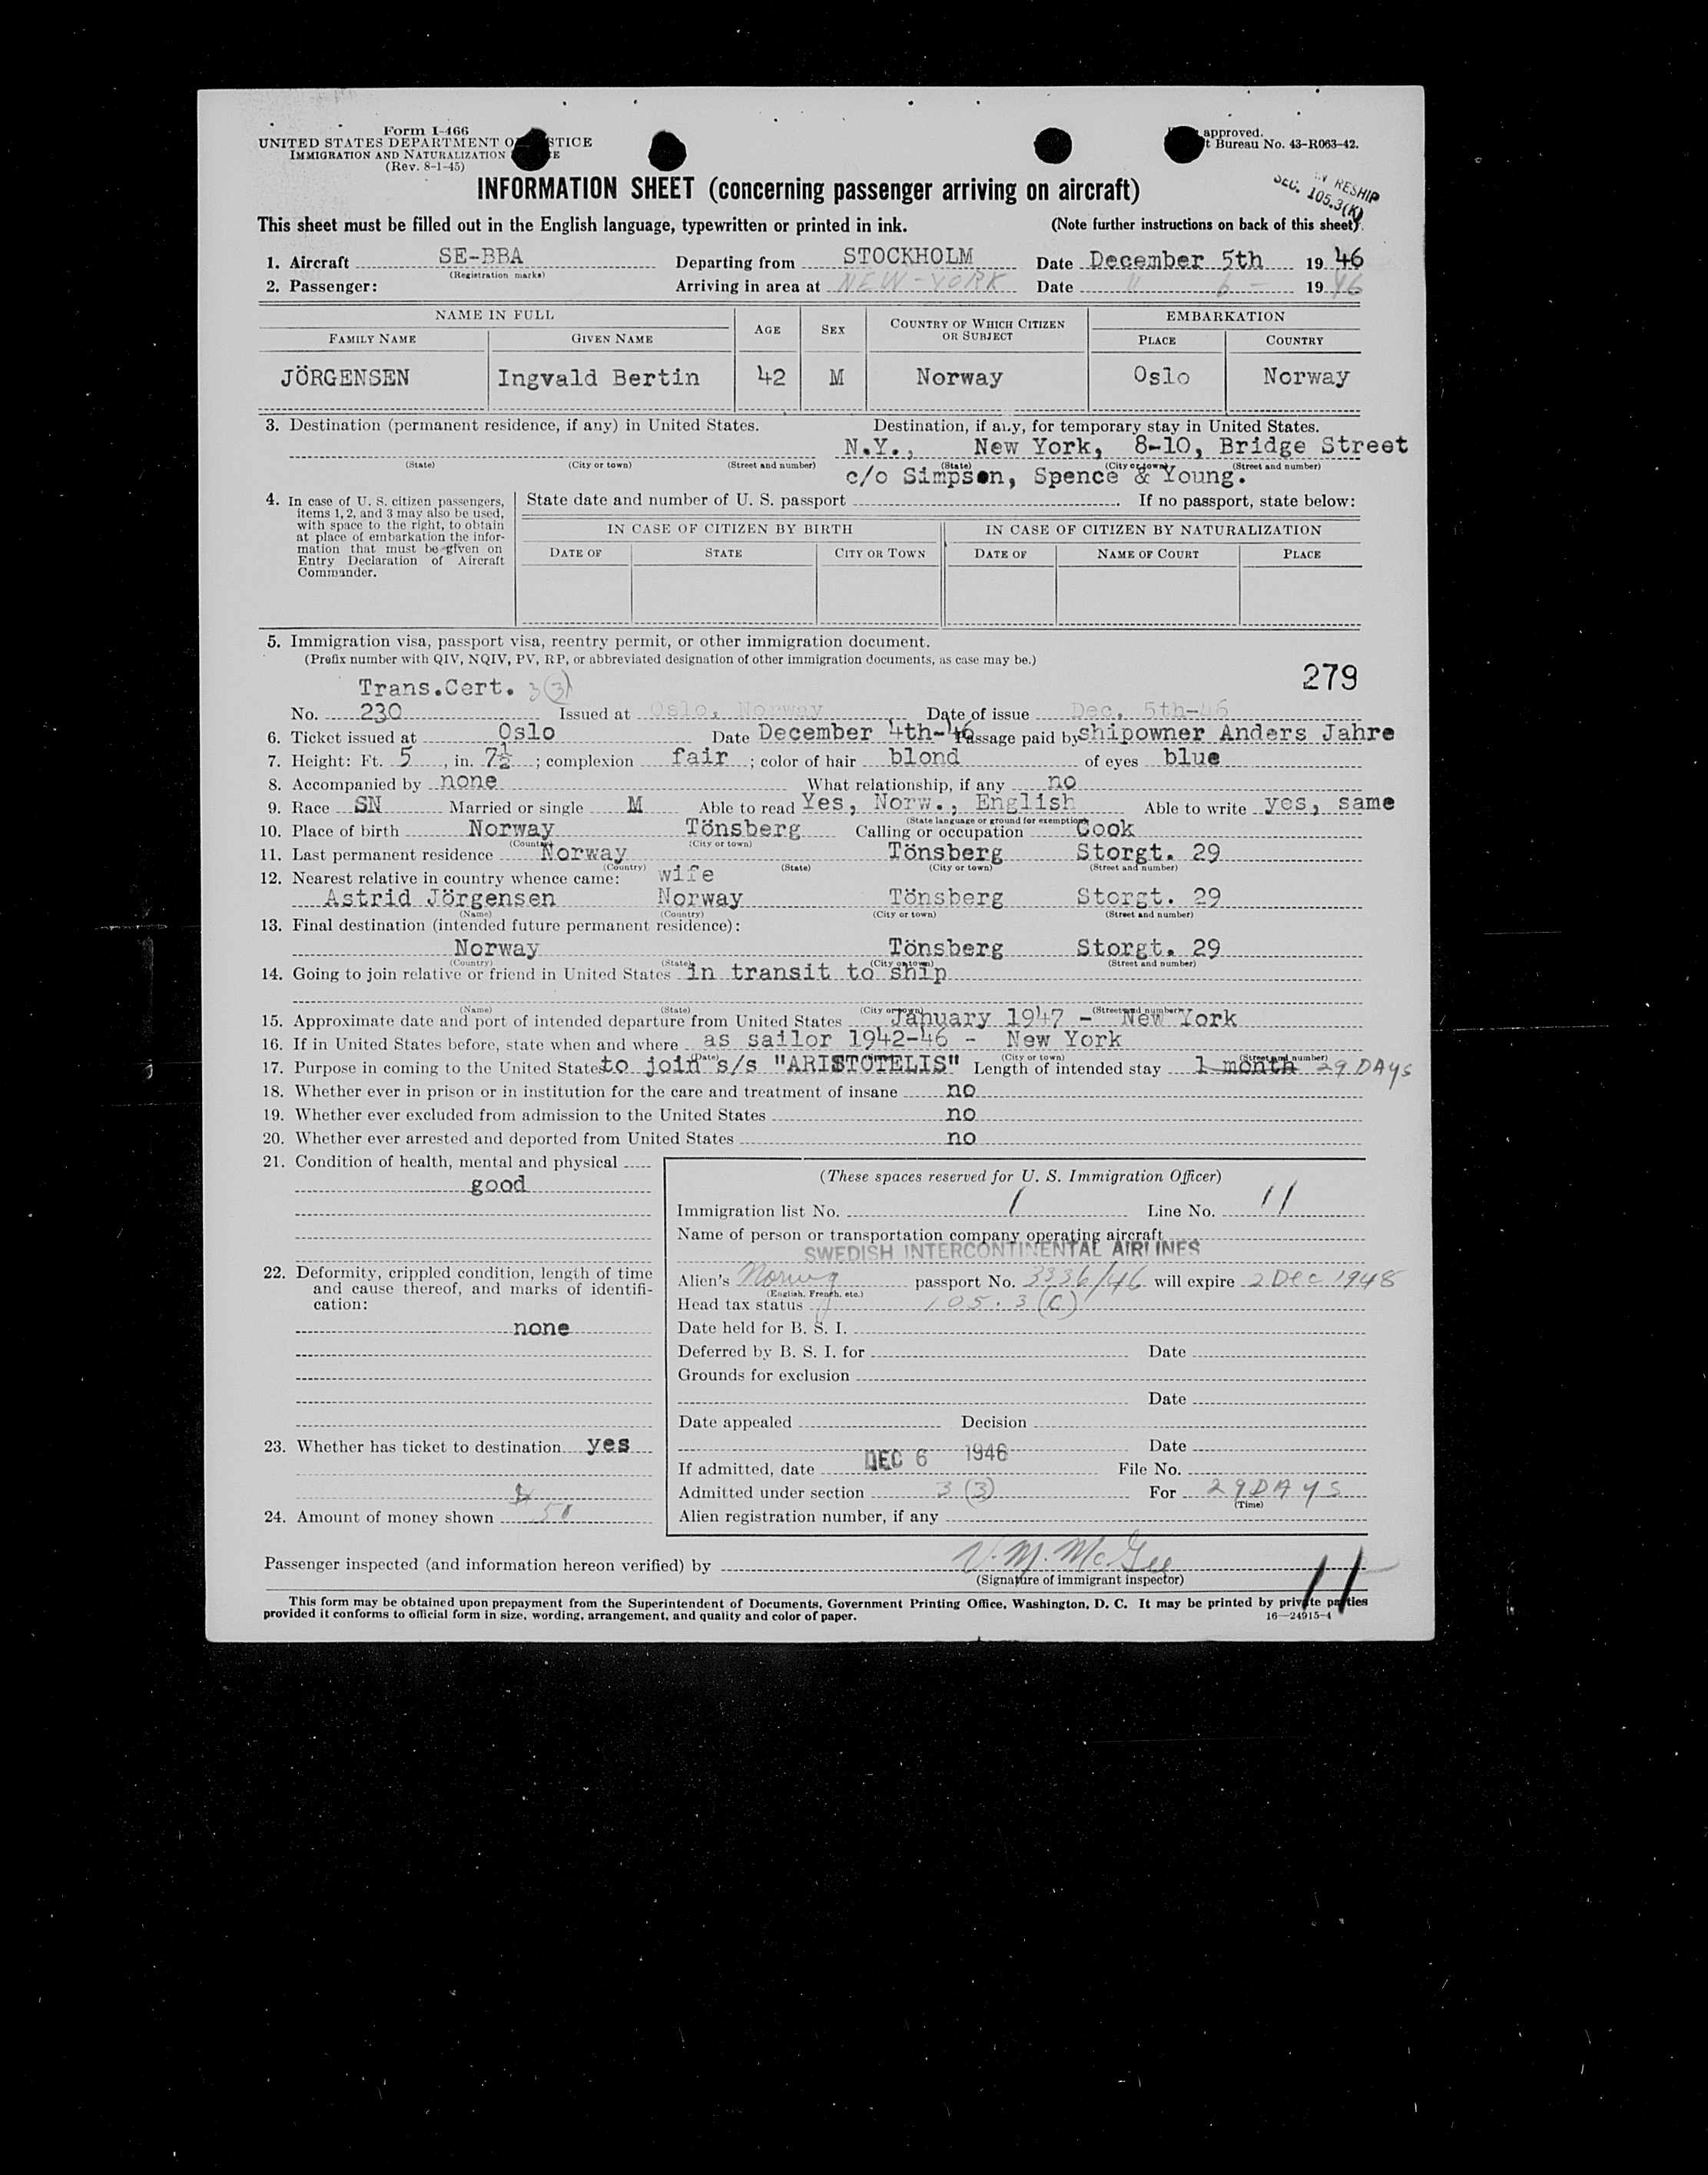 Form I-466
UNITED STATES DEPARTMENT O STICE
IMMIGRATION AND NATURALIZATION E
(Rev. 8-1-45)
approved.
t Bureau No. 43-R063-42.
INFORMATION SHEET (concerning passenger arriving on aircraft)
RESHIP
SEC. 105.3(K)
This sheet must be filled out in the English language, typewritten or printed in ink. (Note further instructions on back of this sheet).
1. Aircraft SE-BBA Departing from STOCKHOLM Date December 5th 19 46
(Registration marks)
2. Passenger: Arriving in area at NEW-YORK Date " 6 - 19 46
NAME IN FULL AGE SEX COUNTRY OF WHICH CITIZEN OR SUBJECT EMBARKATION
FAMILY NAME GIVEN NAME PLACE COUNTRY
JÖRGENSEN Ingvald Bertin 42 M Norway Oslo Norway
3. Destination (permanent residence, if any) in United States. Destination, if any, for temporary stay in United States.
N.Y., New York, 8-10, Bridge Street
(State) (City or town) (Street and number) (State) (City or town) (Street and number)
c/o Simpson, Spence & Young.
4. In case of U. S. citizen passengers, items 1, 2, and 3 may also be used, with space to the right, to obtain at place of embarkation the information that must be given on Entry Declaration of Aircraft Commander.
State date and number of U. S. passport . If no passport, state below:
IN CASE OF CITIZEN BY BIRTH IN CASE OF CITIZEN BY NATURALIZATION
DATE OF STATE CITY OR TOWN DATE OF NAME OF COURT PLACE
5. Immigration visa, passport visa, reentry permit, or other immigration document.
(Prefix number with QIV, NQIV, PV, RP, or abbreviated designation of other immigration documents, as case may be.)
279
Trans.Cert. 3(3)
No. 230 Issued at Oslo, Norway Date of issue Dec. 5th-46
6. Ticket issued at Oslo Date December 4th-46 Passage paid by shipowner Anders Jahre
7. Height: Ft. 5, in. 7½; complexion fair; color of hair blond of eyes blue
8. Accompanied by none What relationship, if any no
9. Race SN Married or single M Able to read Yes, Norw., English Able to write yes, same
(State language or ground for exemption)
10. Place of birth Norway Tönsberg Calling or occupation Cook
(Country) (City or town)
11. Last permanent residence Norway Tönsberg Storgt. 29
(Country) (State) (City or town) (Street and number)
12. Nearest relative in country whence came: wife
Astrid Jörgensen Norway Tönsberg Storgt. 29
(Name) (Country) (City or town) (Street and number)
13. Final destination (intended future permanent residence):
Norway Tönsberg Storgt. 29
(Country) (State) (City or town) (Street and number)
14. Going to join relative or friend in United States in transit to ship
(Name) (State) (City or town) (Street and number)
15. Approximate date and port of intended departure from United States January 1947 - New York
16. If in United States before, state when and where as sailor 1942-46 - New York
(Date) (City or town) (Street and number)
17. Purpose in coming to the United States to join s/s "ARISTOTELIS" Length of intended stay 1 month 29 DAYS
18. Whether ever in prison or in institution for the care and treatment of insane no
19. Whether ever excluded from admission to the United States no
20. Whether ever arrested and deported from United States no
21. Condition of health, mental and physical
good
22. Deformity, crippled condition, length of time and cause thereof, and marks of identification:
none
23. Whether has ticket to destination yes
$
24. Amount of money shown 50
(These spaces reserved for U. S. Immigration Officer)
Immigration list No. 1 Line No. 11
Name of person or transportation company operating aircraft
SWEDISH INTERCONTINENTAL AIRLINES
Alien's Norwg passport No. 3336/46 will expire 2 Dec 1948
(English, French, etc.)
Head tax status 105.3(C)
Date held for B. S. I.
Deferred by B. S. I. for Date
Grounds for exclusion
Date
Date appealed Decision
Date
If admitted, date DEC 6 1946 File No.
Admitted under section 3 (3) For 29 DAYS
(Time)
Alien registration number, if any
Passenger inspected (and information hereon verified) by V. M. McGee
(Signature of immigrant inspector)
11
This form may be obtained upon prepayment from the Superintendent of Documents, Government Printing Office, Washington, D. C. It may be printed by private parties
provided it conforms to official form in size, wording, arrangement, and quality and color of paper. 16—24915-4